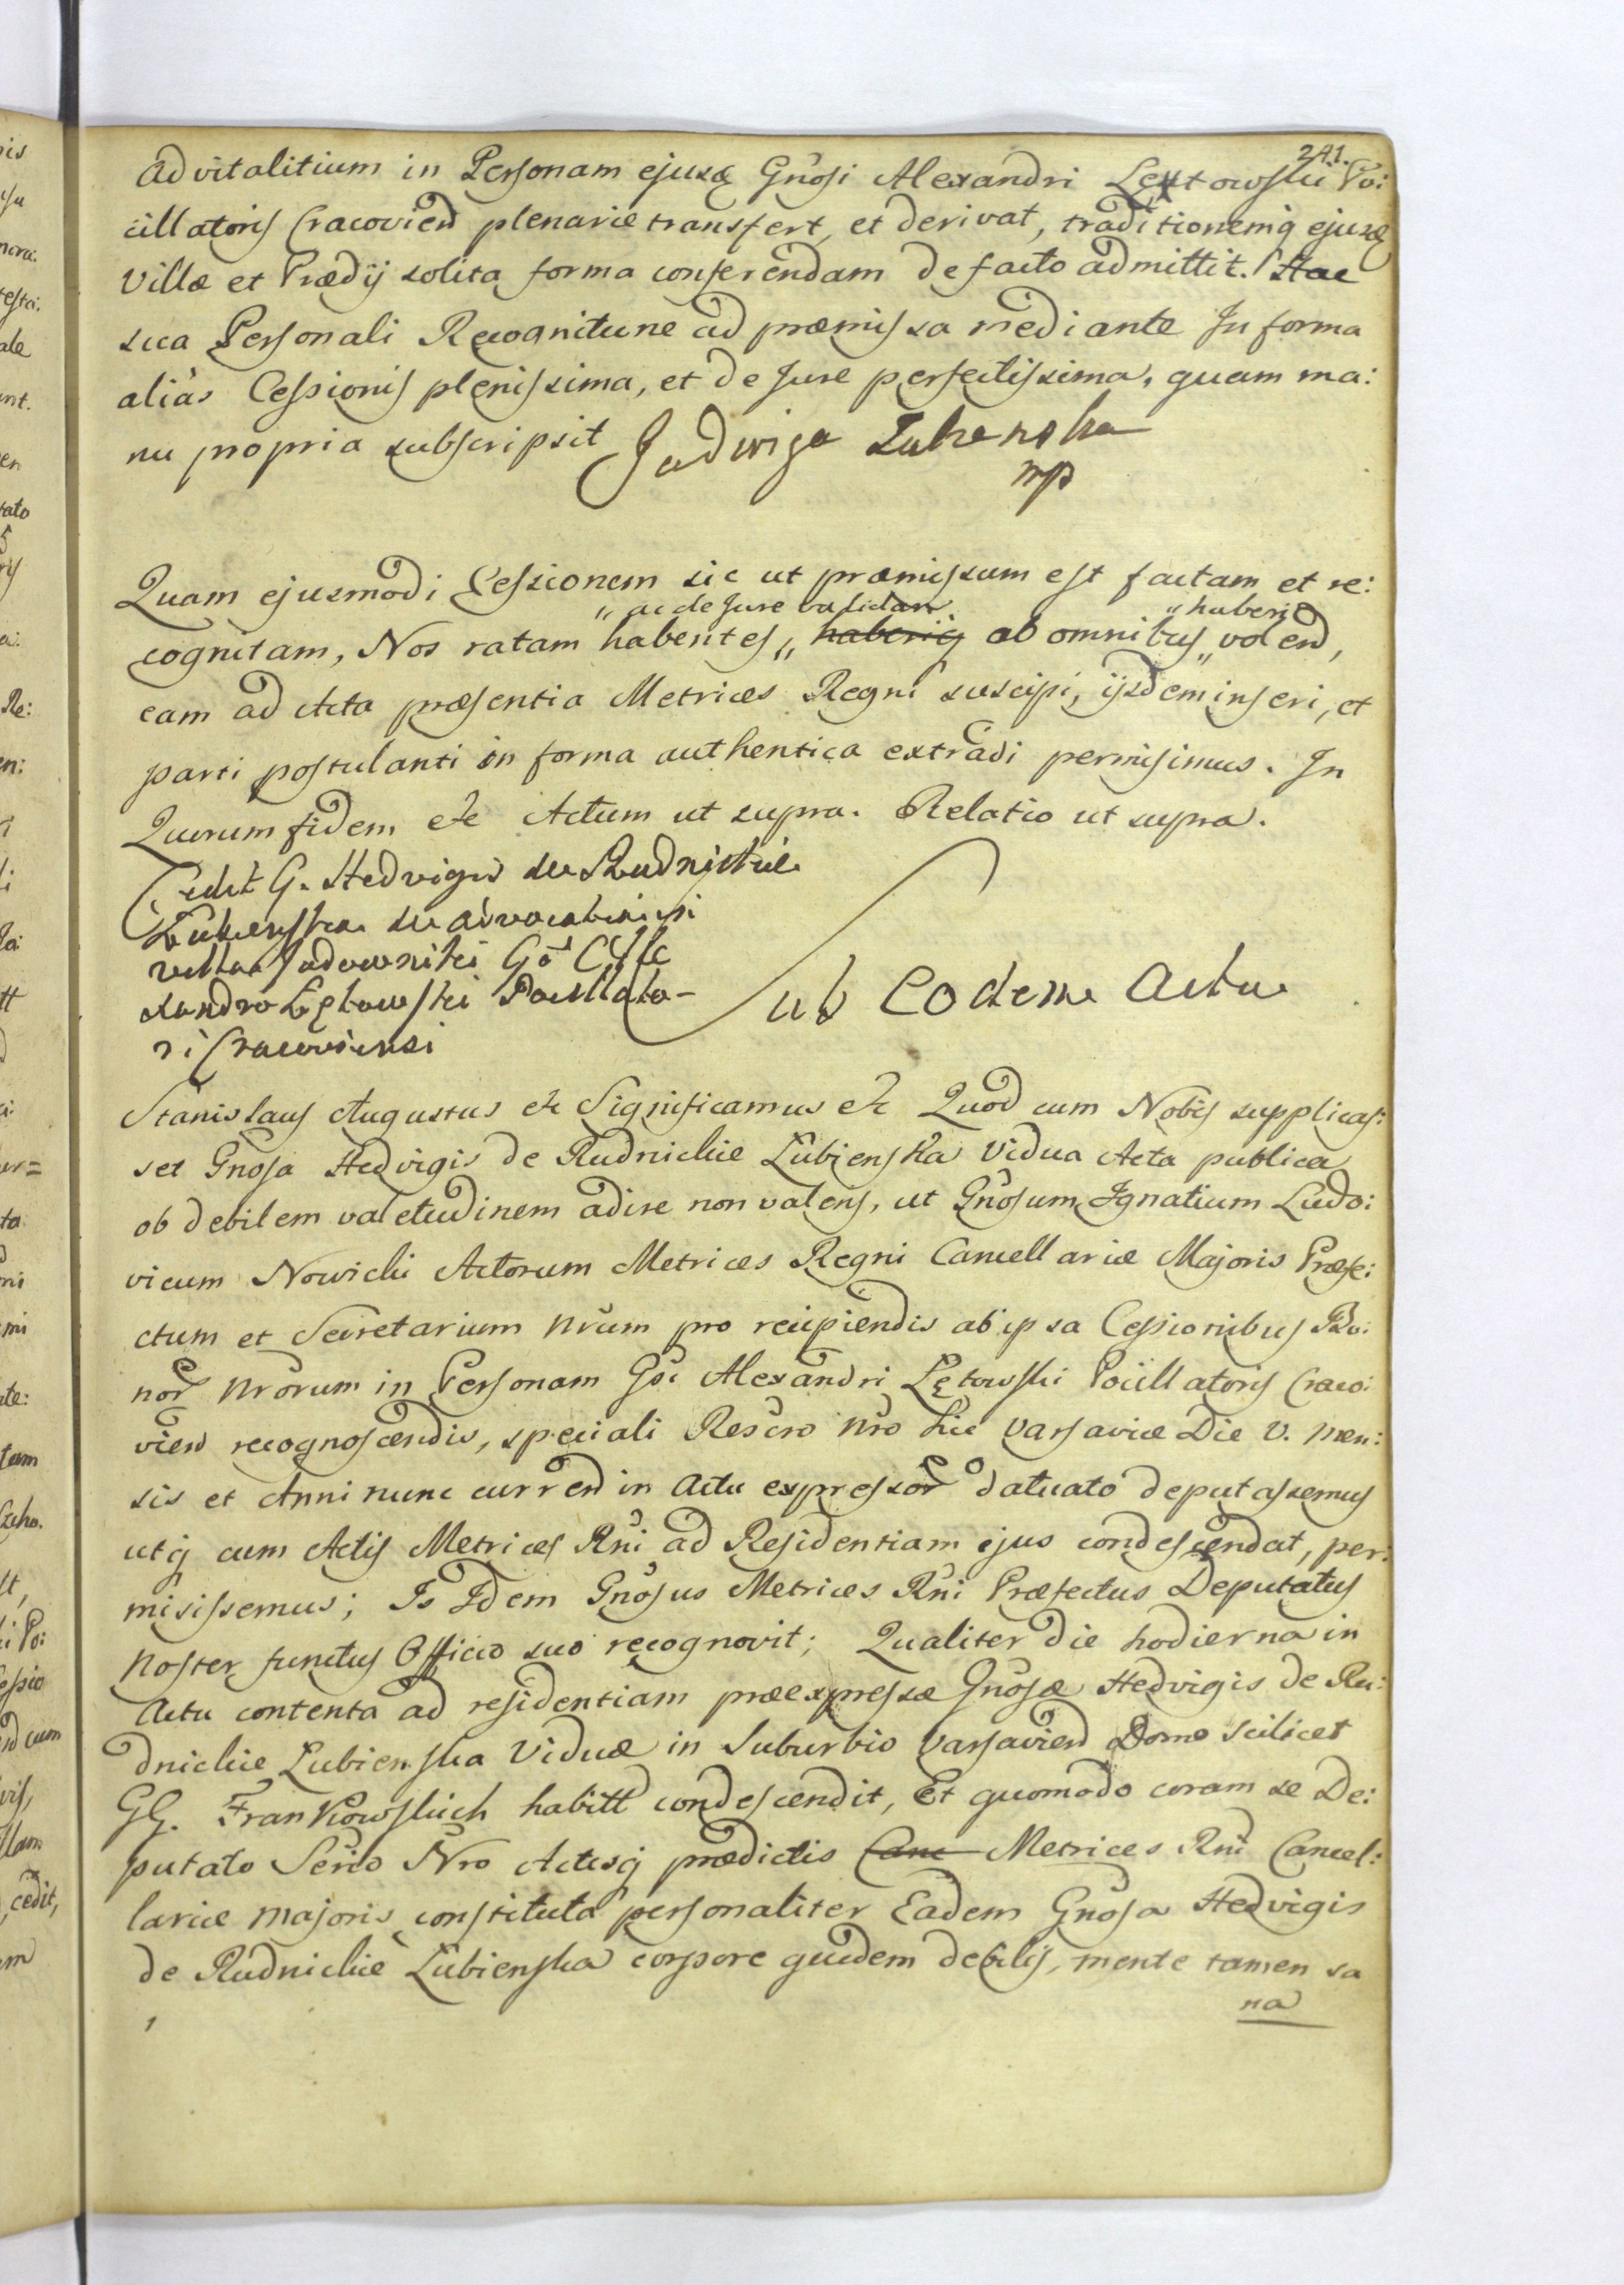 241.
advitalitium in Personam ejusq Gnosi Alexandri Lętowski Po:
cillatoris Cracovien plenarie transfert, et derivat, traditionemq ejusq
Villæ et Prædij solita forma conferendam de facto admittit. Hac
sua Personali Recognitione ad præmissa mediante In forma
aliàs Cessionis plenissima, et de Jure perfectissima, quam ma:
nu propria subscripsit Jadwiga Lubienska
mp
Quam ejusmodi Cessionem sic ut præmissum est factam et re:
„ ac de Jure validam „ haberi
cognitam, Nos ratam habentes „ haberiq ab omnibus „ volen,
eam ad Acta præsentia Metrices Regni suscipi, ijsdem inseri, et
parti postulanti in forma authentica extradi permisimus. In
Quorum fidem etc Actum ut supra. Relatio ut supra.
Cedit G. Hedvigis de Rudnickie
Lubienska de advocatia in
villa Jadowniki Go Ale
xandro Lętowski Pocillato-
ri Cracoviensi
ab Eodem Actu
Stanislaus Augustus etc Significamus etc Quod cum Nobis supplicas:
set Gnosa Hedvigis de Rudnickie Lubienska Vidua Acta publica
ob debilem valetudinem adire non valens, ut Gnosum Ignatium Ludo:
vicum Nowicki Actorum Metrices Regni Cancellariæ Majoris Præfe:
ctum et Secretarium Nrum pro recipiendis ab ipsa Cessionibus Bo:
nor Nrorum in Personam Gsi Alexandri Lętowski Pocillatoris Craco:
vien recognoscendis, speciali Rescro Nro hic Varsaviæ Die V. Men:
sis et Anni nunc curren in Actu expressor datuato deputassemus
utq cum Actis Metrices Rni ad Residentiam ejus condescendat, per:
misissemus; Is Idem Gnosus Metrices Rni Præfectus Deputatus
Noster functus Officio suo recognovit; Qualiter die hodierna in
Actu contenta ad residentiam præexpressæ Gnosæ Hedvigis de Ru:
dnickie Lubienska Viduæ in Suburbio Varsavien Domo scilicet
GG. Frankowskich habitt condescendit, Et quomodo coram se De:
putato Secrio Nro Actisq prædictis Canc Metrices Rni Cancel:
lariæ Majoris constituta personaliter Eadem Gnosa Hedvigis
de Rudnickie Lubienska corpore quidem debilis, mente tamen sa
na